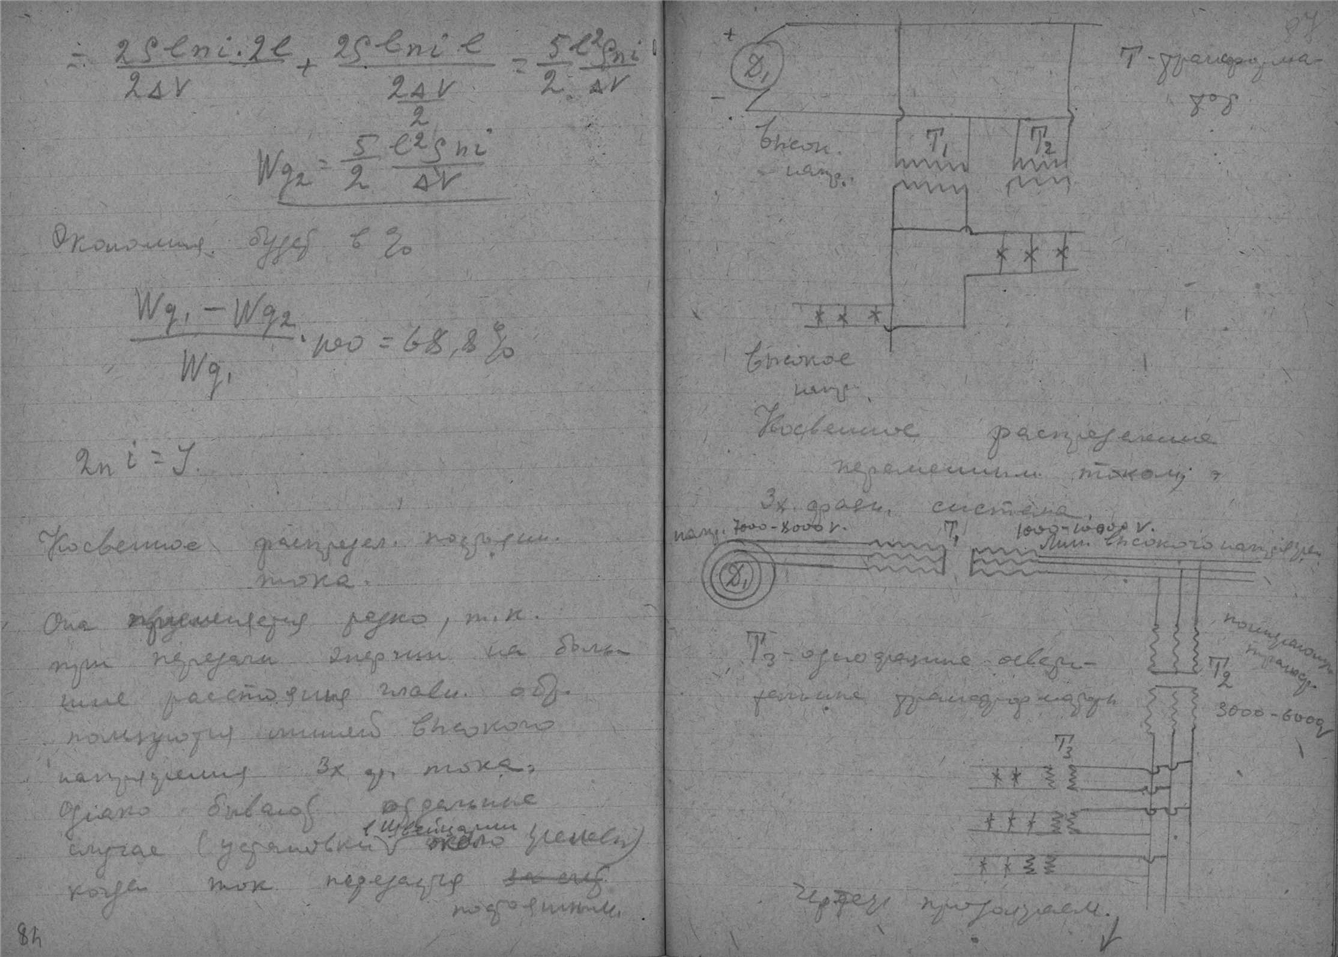 ÷ 2ρlni·2l / 2ΔV + 2ρlni l / (2ΔV / 2) = 5/2 l²ρni / ΔV
Wg₂ = 5/2 l²ρni / ΔV
Экономия будет в %
(Wg₁ − Wg₂) / Wg₁ · 100 = 68,8 %
2n i = J.
Косвенное распредел. постоян.
тока.
Она применяется редко, т.к.
при передачи энергии на боль-
шие расстояния главн. обр.
пользуются линией высокого
напряжения 3х ф. тока.
Однако бывают отдельные
в Швейцарии
случае (установки около Женевы)
когда ток передаётся
постоянным.
84
+
Д₁
−
Т-трансформа-
тор
Высок.
напр.
Т₁ Т₂
Высокое
напр.
Косвенное распределение
переменным током,
3х фазн. система.
напр. 7000-8000 v. Т₁ 1000-10000 v.
Лин. высокого напряжен.
Д₁
Т₃-однофазные освети-
тельные трансформаторы
Т₂
понижающ.
трансф.
3000-6000 v
Т₃
Чертеж продолжаем.